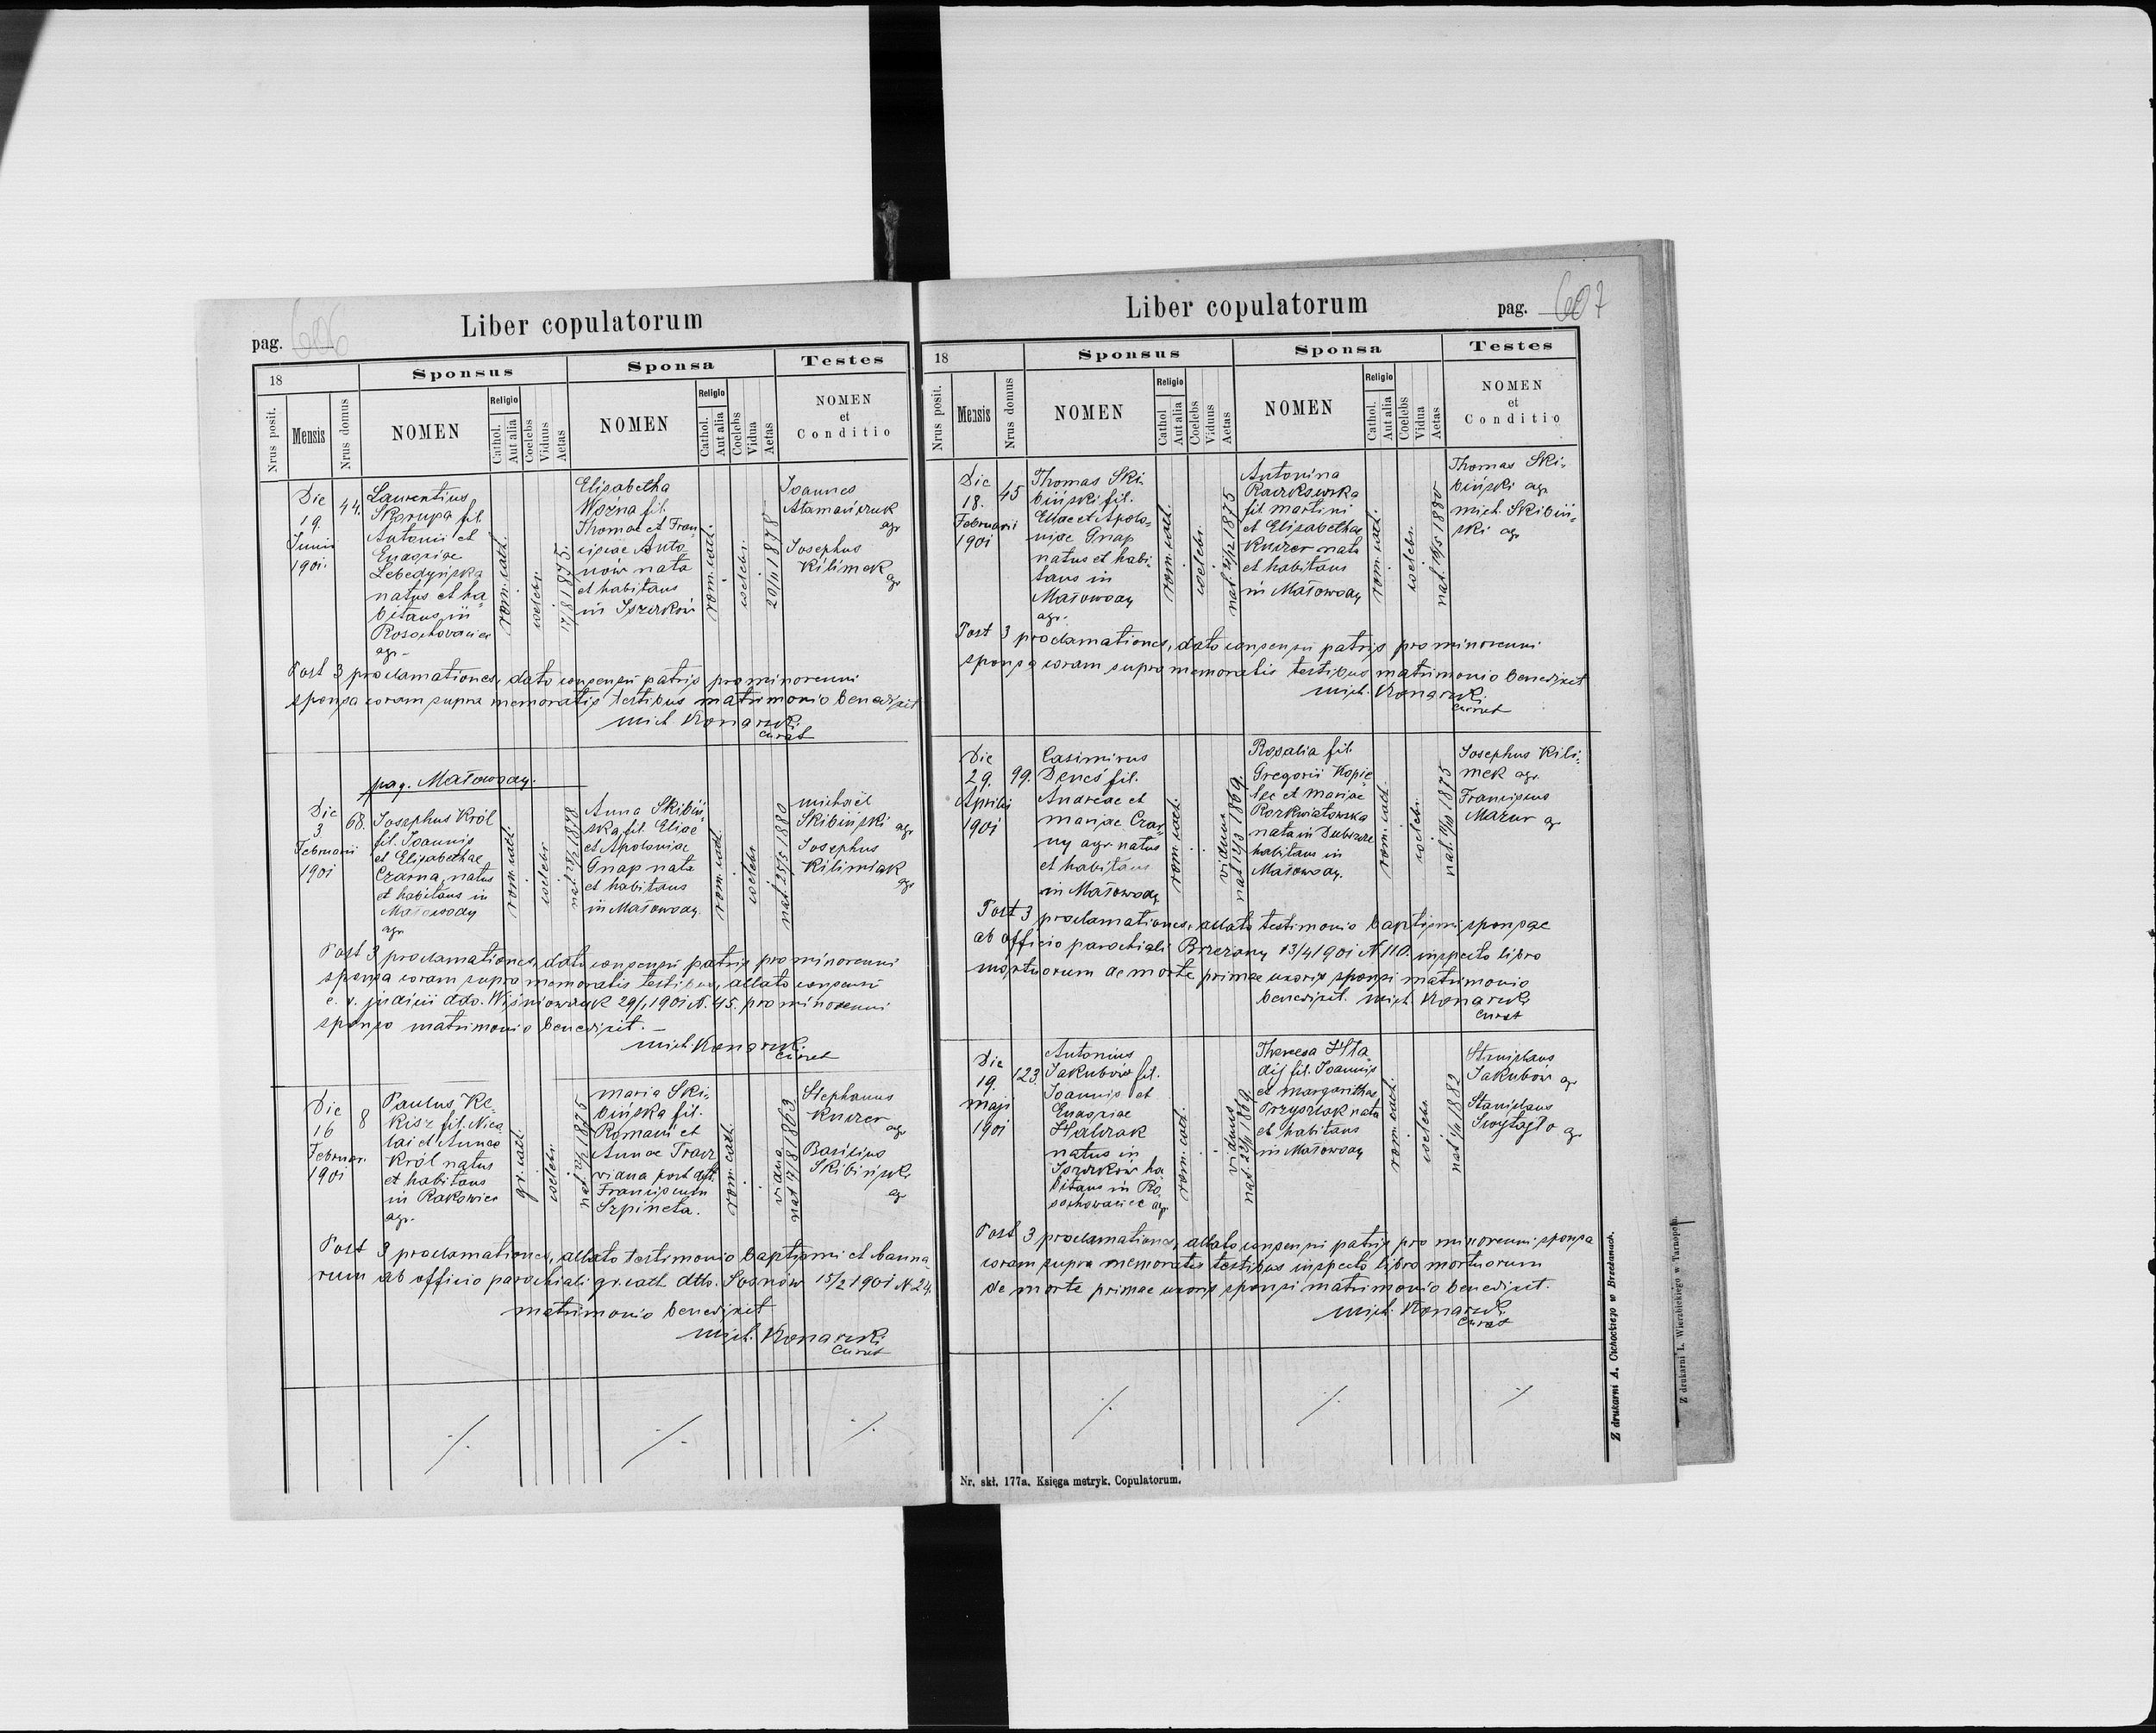 pag. 606
Liber copulatorum
18
Sponsus
Sponsa
Testes
Nrus posit.
Mensis
Nrus domus
NOMEN
Religio
Cathol.
Aut alia
Coelebs
Viduus
Aetas
NOMEN
Religio
Cathol.
Aut alia
Coelebs
Vidua
Aetas
NOMEN
et
Conditio
Die
19.
Junii
1901.
44.
Laurentius
Skorupa fil.
Antonii et
Lebedyńska
natus et ha-
bitans in
agr.
rom. cath.
coelebs.
17/8 1875.
Elisabetha
Woźna fil.
Thomae et Fran-
ciscae Anto-
now nata
et habitans
in Iszczków
rom. cath.
coelebs.
20/11 1878
Joannes
Atamańczuk
agr
Josephus
Kilimek
agr
Post 3 proclamationes, dato consensu patris pro minorenni
sponsa coram supra memoratis testibus matrimonio benedixit
Mich. Konarski
Curat
pag. Małowody.
Die
3
Februarii
1901
68.
Josephus Król
fil. Joannis
et Elisabethae
Czarna, natus
et habitans in
Małowody
agr.
rom. cath.
coelebs
Anna Skibiń-
ska fil. Eliae
et Apoloniae
Gnap nata
et habitans
in Małowody.
rom. cath.
coelebs
nat. 25/5 1880
Michaël
Skibiński agr
Josephus
Kilimiak
agr
Post 3 proclamationes, dato consensu patris pro minorenni
sponsa coram supra memoratis testibus, allato consensu
c. r. judicii dto. Wiśniowczyk 29/1 1901 N. 45. pro minorenni
sponso matrimonio benedixit. —
Mich. Konarski
Curat
Die
16
Februar.
1901
8
Paulus Ke-
kisz fil. Nico-
lai et Annae
Król natus
et habitans
in Rakowiec
agr.
gr. cath.
coelebs.
Maria Ski-
bińska fil.
Romani et
Annae Tracz
vidua post def.
Franciscum
Szpineta.
rom. cath.
vidua
nat 17/8 1863
Stephanus
Knizer
agr
Basilius
Skibiński
agr
Post 3 proclamationes, allato testimonio baptismi et banno-
rum ab officio parochiali gr. cath. dtto. Sosnów 15/2 1901 N. 24.
matrimonio benedixit
Mich. Konarski
Curat
Liber copulatorum
pag. 607
18
Sponsus
Sponsa
Testes
Nrus posit.
Mensis
Nrus domus
NOMEN
Religio
Cathol
Aut alia
Coelebs
Viduus
Aetas
NOMEN
Religio
Cathol.
Aut alia
Coelebs
Vidua
Aetas
NOMEN
et
Conditio
Die
18.
Februarii
1901
45
Thomas Ski-
biński fil.
Eliae et Apolo-
niae Gnap
natus et habi-
tans in
Małowody
agr.
rom. cath.
coelebs.
nat. 21/12 1875
Antonina
Raczkowska
fil Martini
et Elisabethae
Knizer nata
et habitans
in Małowody
rom. cath.
coelebs.
nat. 10/5 1880
Thomas Ski-
biński agr.
Mich. Skibiń-
ski agr
Post 3 proclamationes, dato consensu patris pro minorenni
sponsa coram supra memoratis testibus matrimonio benedixit
Mich. Konarski
Curat
Die
29.
Aprilis
1901
99.
Casimirus
Deneś fil.
Andreae et
Mariae Czar-
ny agr. natus
et habitans
in Małowody
rom. cath.
viduus
nat 12/3 1869.
Rosalia fil.
Gregorii Kopie
lec et Mariae
Rozkwiatowska
nata in Dubszcze
habitans in
Małowody.
rom. cath.
coelebs.
nat. 10/10 1875
Josephus Kili-
mek agr.
Franciscus
Mazur agr
Post 3 proclamationes, allato testimonio baptismi sponsae
ab officio parochiali Brzezany 13/4 1901 N 110. inspecto libro
mortuorum de morte primae uxoris sponsi matrimonio
benedixit. Mich. Konarski
Curat
Die
19.
Maji
1901
123.
Antonius
Jakubów fil.
Joannis et
natus in
Iszczków ha-
bitans in Ro-
sochowaciec agr.
rom. cath.
viduus
Theresa Hła-
dij fil. Joannis
et Margarithae
Przyszlak nata
et habitans
in Małowody
rom. cath.
coelebs.
nat 1/11 1882
Stanislaus
Jakubów agr
Stanislaus
Swystajło agr
Post 3 proclamationes, allato consensu patris pro minorenni sponsa
coram supra memoratis testibus inspecto libro mortuorum
de morte primae uxoris sponsi matrimonio benedixit.
Mich. Konarski
Curat
Nr. skł. 177a. Księga metryk. Copulatorum.
Z drukarni A. Cichockiego w Brzeżanach.
Z drukarni L. Wierzbickiego w Tarnopolu.